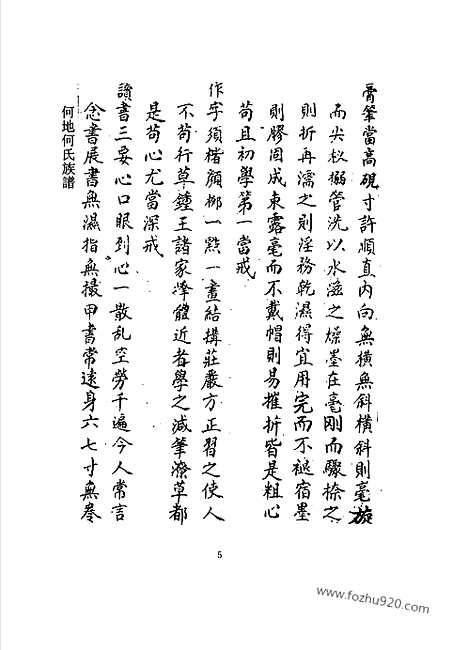 膏筆當高硯寸許順直內向無橫無斜橫斜則毫旋
而尖杈搦管洗以水滋之燥墨在毫剛而驟捺之
則折再濡之則淫務乾濕得宜用完而不褪宿墨
則膠固成束露毫而不戴帽則易摧折皆是粗心
苟且初學第一當戒
作字須楷顏柳一點一畫結搆莊嚴方正習之使人
不苟行草鍾王諸家㪯體近者學之減筆潦草都
是苟心尤當深戒
讀書三要心口眼到心一散乱空勞千遍今人常言
念書展書無濕指無撮甲書常遠身六七寸無卷
何地何氏族譜
5
www.fozhu920.com